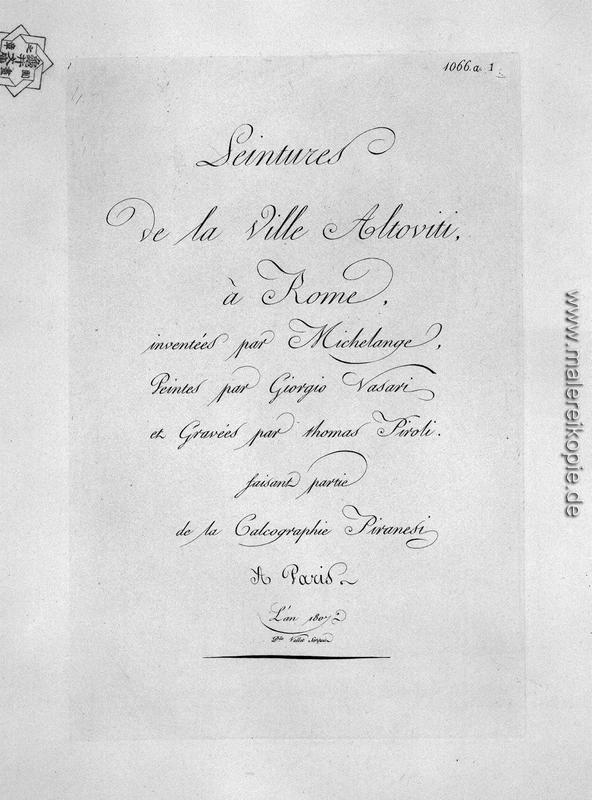 1066.a 1
Peintures
de la Ville Altoviti,
à Rome,
inventées par Michelange,
Peintes par Giorgio Vasari
et Gravées par thomas Piroli.
faisant partie
de la Calcographie Piranesi
A Paris
L'an 1807
www.malereikopie.de